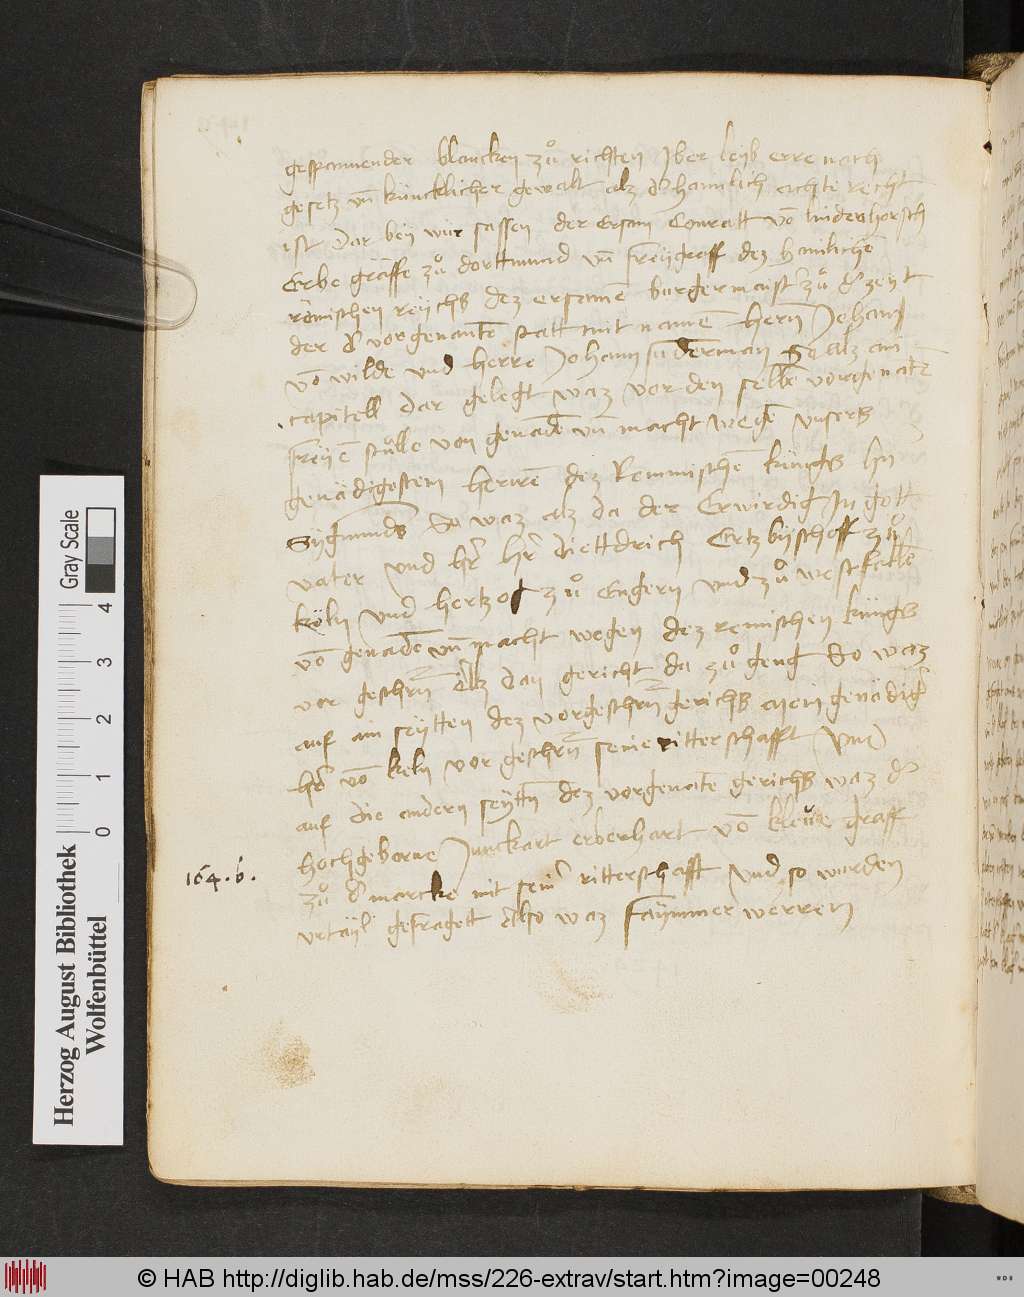 gespannender blancken zuͦ richten Jber leyb erre nach
gesetz vn̄ künicklicher gewalt alz dʼ hainlich achte recht
ist Dar bey wúr sassen der Ersam Conratt vō lindenhorsch
Erbe gräffe zuͦ dorttmund vn̄ freygraff dez hamlichē
römischen reychs dez ersamē burgermaistʼ zuͦ dʼ zeyt
der dʼ vorgenantē statt mit namē hern Johans
vō wilde vnd herre Johann suderman So alz ain
capitell dar gelegt waz vor den selbē vorgenatē
freyē stülle von genadē vn̄ macht wegē vnsers
genädigesten herrrē dez Remmischē küngs hn
Sygmunds So waz alz da der Erwirdig In gott
vater vnd hʼr hʼr diettdrich Ertzbyschoff zuͦ
köln vnd hertzog zuͦ Engern vnd zuͦ westfallē
vō genadē vn̄ macht wegen dez remischen küngs
vor geschrn̄ Alz dan gericht da zuͦ geng So waz
auf ain seytten dez vorgeschrn̄ gerichs mein genädigʼ
hʼr vō keln vor geschrn̄ seine ritterschafft Vnd
auf die andern seyttn̄ dez vorgenatē gerichs waz dʼ
hochgeborne Junckart erberhart vō kleue graff
zuͦ dʼ marcke mit seinʼ ritterschafft vnd so wurden
vrtayl gefragett Also waz saymmer werren
164.b.
Herzog August Bibliothek
Wolfenbüttel
0 1 2 3 4
Gray Scale
© HAB http://diglib.hab.de/mss/226-extrav/start.htm?image=00248